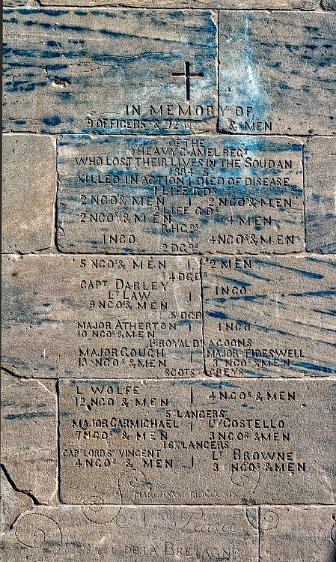 IN MEMORY OF
9 OFFICERS & 92 & MEN
OF THE
HEAVY CAMEL REGT
WHO LOST THEIR LIVES IN THE SOUDAN
1884-5
KILLED IN ACTION DIED OF DISEASE
1 LIFE GDS
2 NGOS & MEN 2 NGOS & MEN
2 LIFE GDS
2 NGOS & MEN 4 MEN
R.H.GDS
1 NGO 4 NGOS & MEN
2 DGDS
5 NGOS & MEN 2 MEN
4 DGDS
CAPT DARLEY 1 NGO
LT LAW
9 NGOS & MEN
5 DGDS
MAJOR ATHERTON 1 NGO
10 NGOS & MEN
1ST ROYAL DRAGOONS
MAJOR GOUGH MAJOR
13 NGOS & MEN NGOS & MEN
SCOTS GREYS
LT WOLFE 4 NGOS & MEN
12 NGOS & MEN
5 LANCERS
MAJOR CARMICHAEL LT COSTELLO
7 NGOS & MEN 3 NGOS & MEN
16TH LANCERS
CAPT LORD ST VINCENT LT BROWNE
4 NGOS & MEN 3 NGOS & MEN
DE LA BRETAGNE